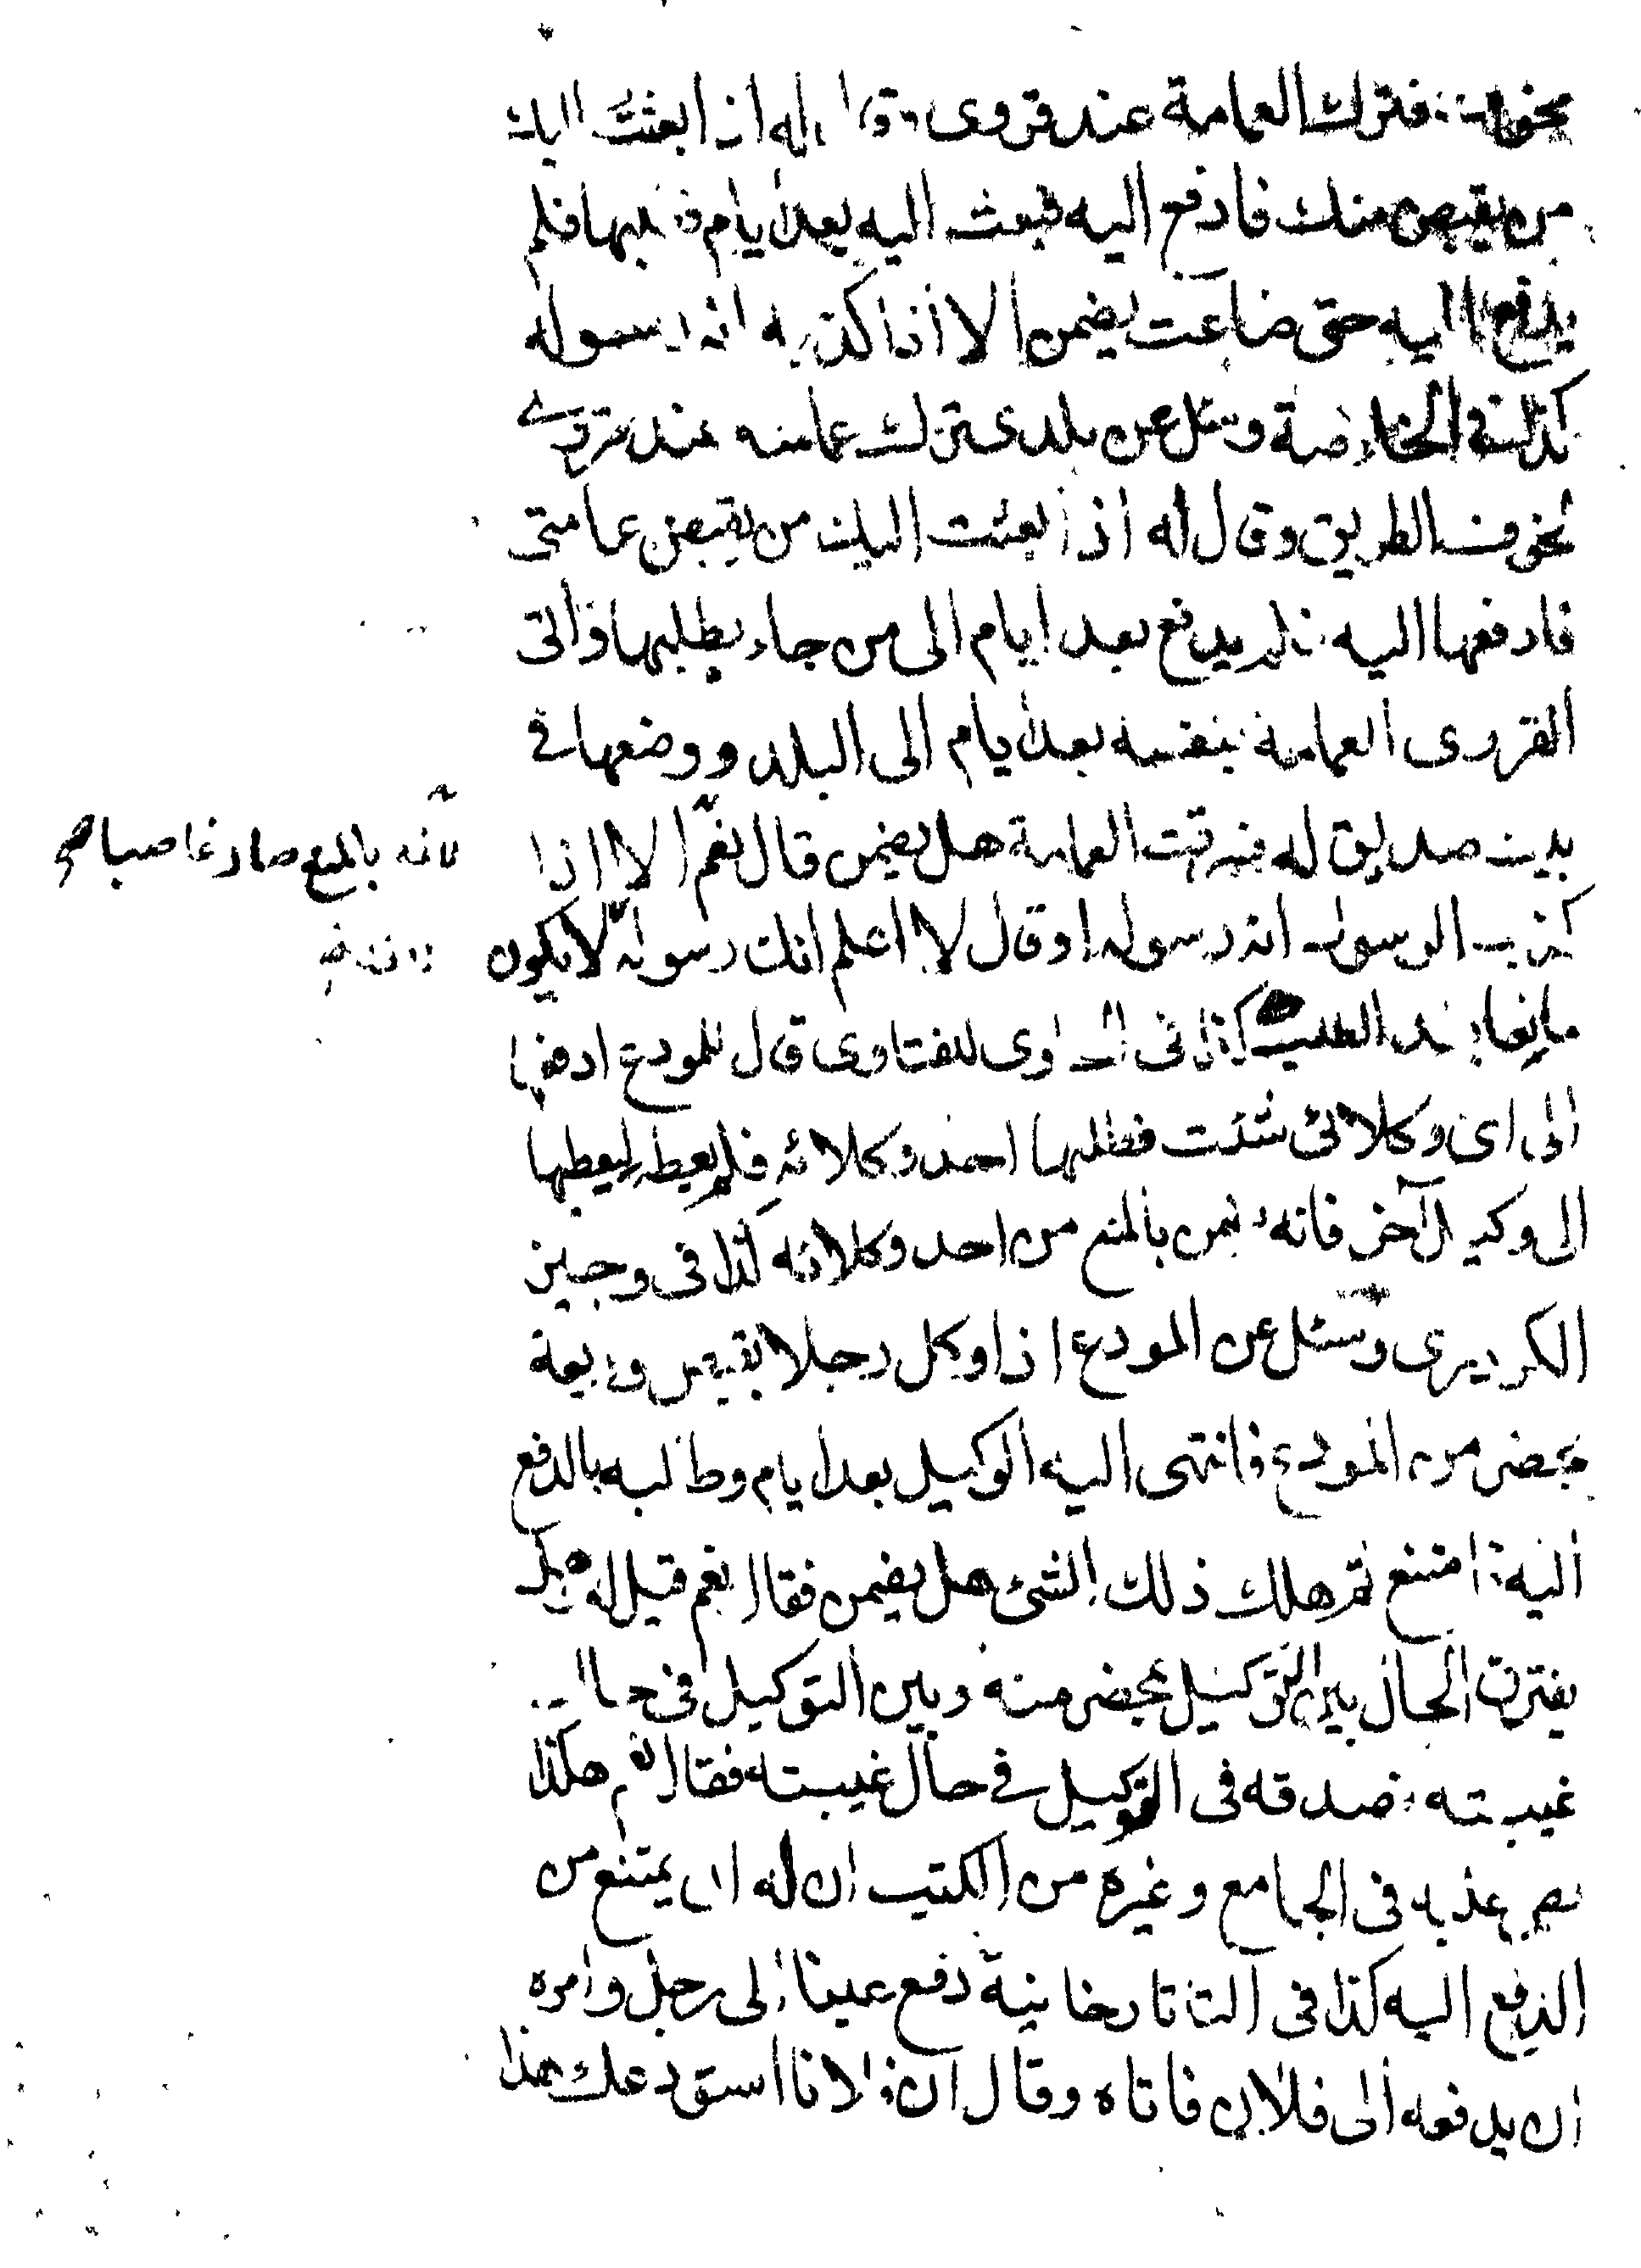 مخوف فترك العمامة عند قروى وقال له اذا بعثت اليك
من يقبض منك فادفع اليه فبعث اليه بعد ايام فطلبها فلم
يدفع اليه حتى ضاعت يضمن الا اذا كذبه انه رسوله
كذا فى الخلاصة وسئل عن بلدى ترك عمامته عند قروى
لخوف الطريق وقال له اذا بعثت اليك من يقبض عمامتى
فادفعها اليه فلم يدفع بعد ايام الى من جاء يطلبها واتى
القروى العمامة بنفسه بعد ايام الى البلد ووضعها فى
بيت صديق له فسرقت العمامة هل يضمن قال نعم الا اذا
لانه بالمنع صار غاصبا صح
كذب الرسول انه رسوله او قال لا اعلم انك رسوله لا يكون
مانعا بعد الطلب كذا فى الحاوى للفتاوى قال للمودع ادفعها
الى اى وكلائى شئت فطلبها احد وكلائه فلم يعطه ليعطيها
الى وكيل آخر فانه يضمن بالمنع من احد وكلائه كذا فى وجيز
الكردرى وسئل عن المودع اذا وكل رجلا بقبض وديعة
بحضر من المودع فانتهى اليه الوكيل بعد ايام وطالبه بالدفع
اليه فامتنع ثم هلك ذلك الشئ هل يضمن فقال نعم قيل له هل
يفترق الحال بين التوكيل بمحضر منه وبين التوكيل فى حال
غيبته فصدقه فى التوكيل فى حال غيبته فقال نعم هكذا
نص عليه فى الجامع وغيره من الكتب ان له ان يمتنع من
الدفع اليه كذا فى التاتارخانية دفع عينا الى رجل وامره
ان يدفعه الى فلان فاتاه وقال ان فلانا استودعك هذا